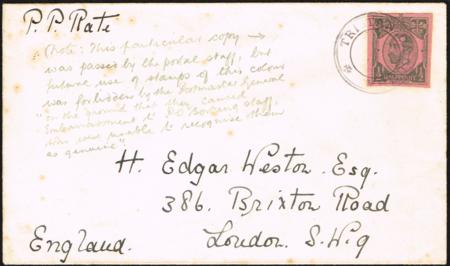 P.P. Rate
TRI
(Note: This particular copy →
was passed by the postal staff, but
future use of stamps of this colour
was forbidden by the Postmaster General
"on the ground that they caused
Embarrassment to P.O. Sorting staff,
who were unable to recognise them
as genuine".
H. Edgar Weston. Esq.
386, Brixton Road
London. S.W.9
England.